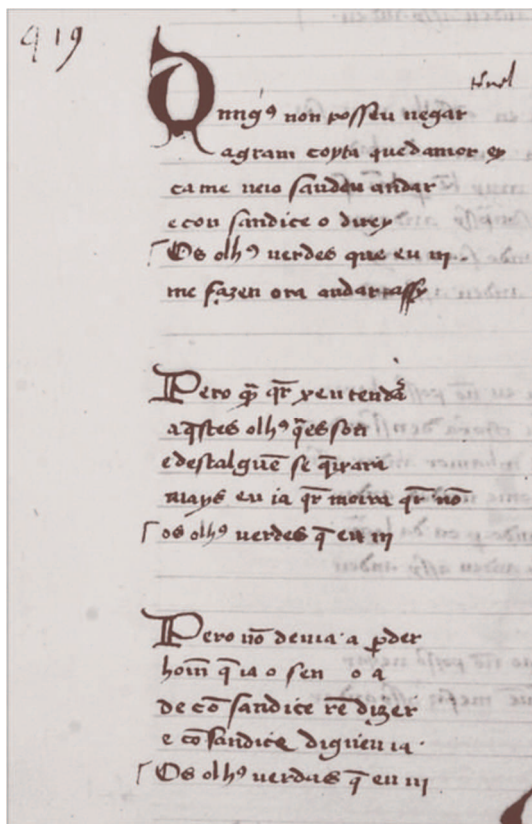 419
tornel
Onnig9 non posseu negar
agram coyta quedamor ey
came ueio sandeu andar
econ sandice o direy
Os olh9 uerdes que eu ui
me fazen ora andar assy
Pero q̄ qr̄ xentenda
aq̄stes olh9 q̄es son
edestalguē se q̄ixara
mays eu ia qr̄ moira qr̄ nō
os olh9 uerdes q̄ eu ui
Pero nō deuia a p̄der
homē q̄ ia o sen o a
de cō sandice rē dizer
e cō sandice digueu ia
Os olh9 uerdes q̄ eu ui